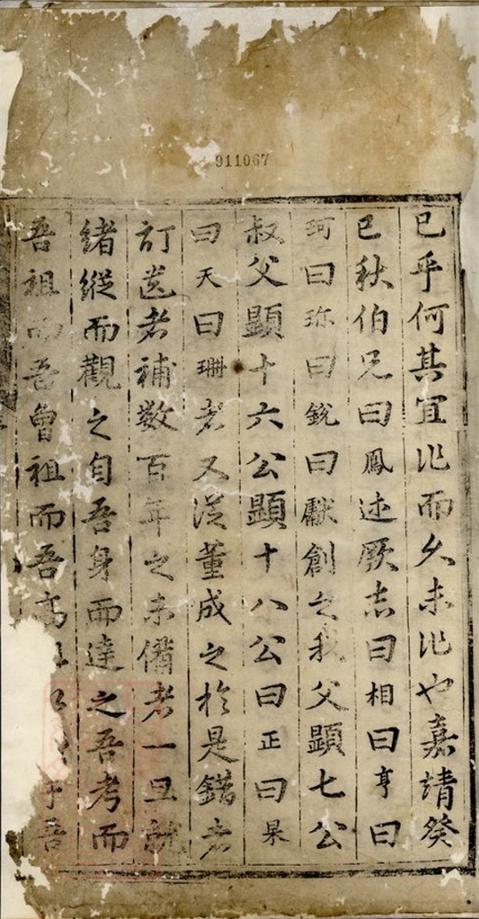 911067
已乎何其宜作而久未作也嘉靖癸
巳秋伯兄曰鳳述厥志曰相曰亨曰
珂曰珎曰銳曰獻創之我父顕七公
叔父顕十六公顕十八公曰正曰杲
曰天曰珊者又從董成之於是錯者
訂遺者補数百年之未備者一旦就
緒縱而觀之自吾身而達之吾考而
吾祖而吾曾祖而吾高
吾